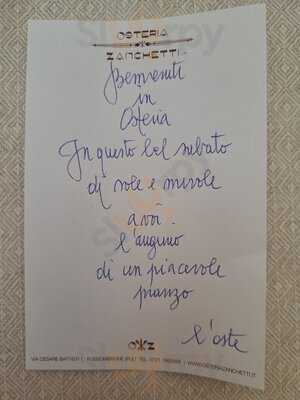 OSTERIA
ZANCHETTI
Benvenuti
in
Osteria
In questo bel sabato
di sole e nuvole
a voi.
l'augurio
di un piacevole
pranzo
l'oste
OZ
VIA CESARE BATTISTI
FOSSOMBRONE (PU) TEL. 0721
WWW.OSTERIAZANCHETTI.IT